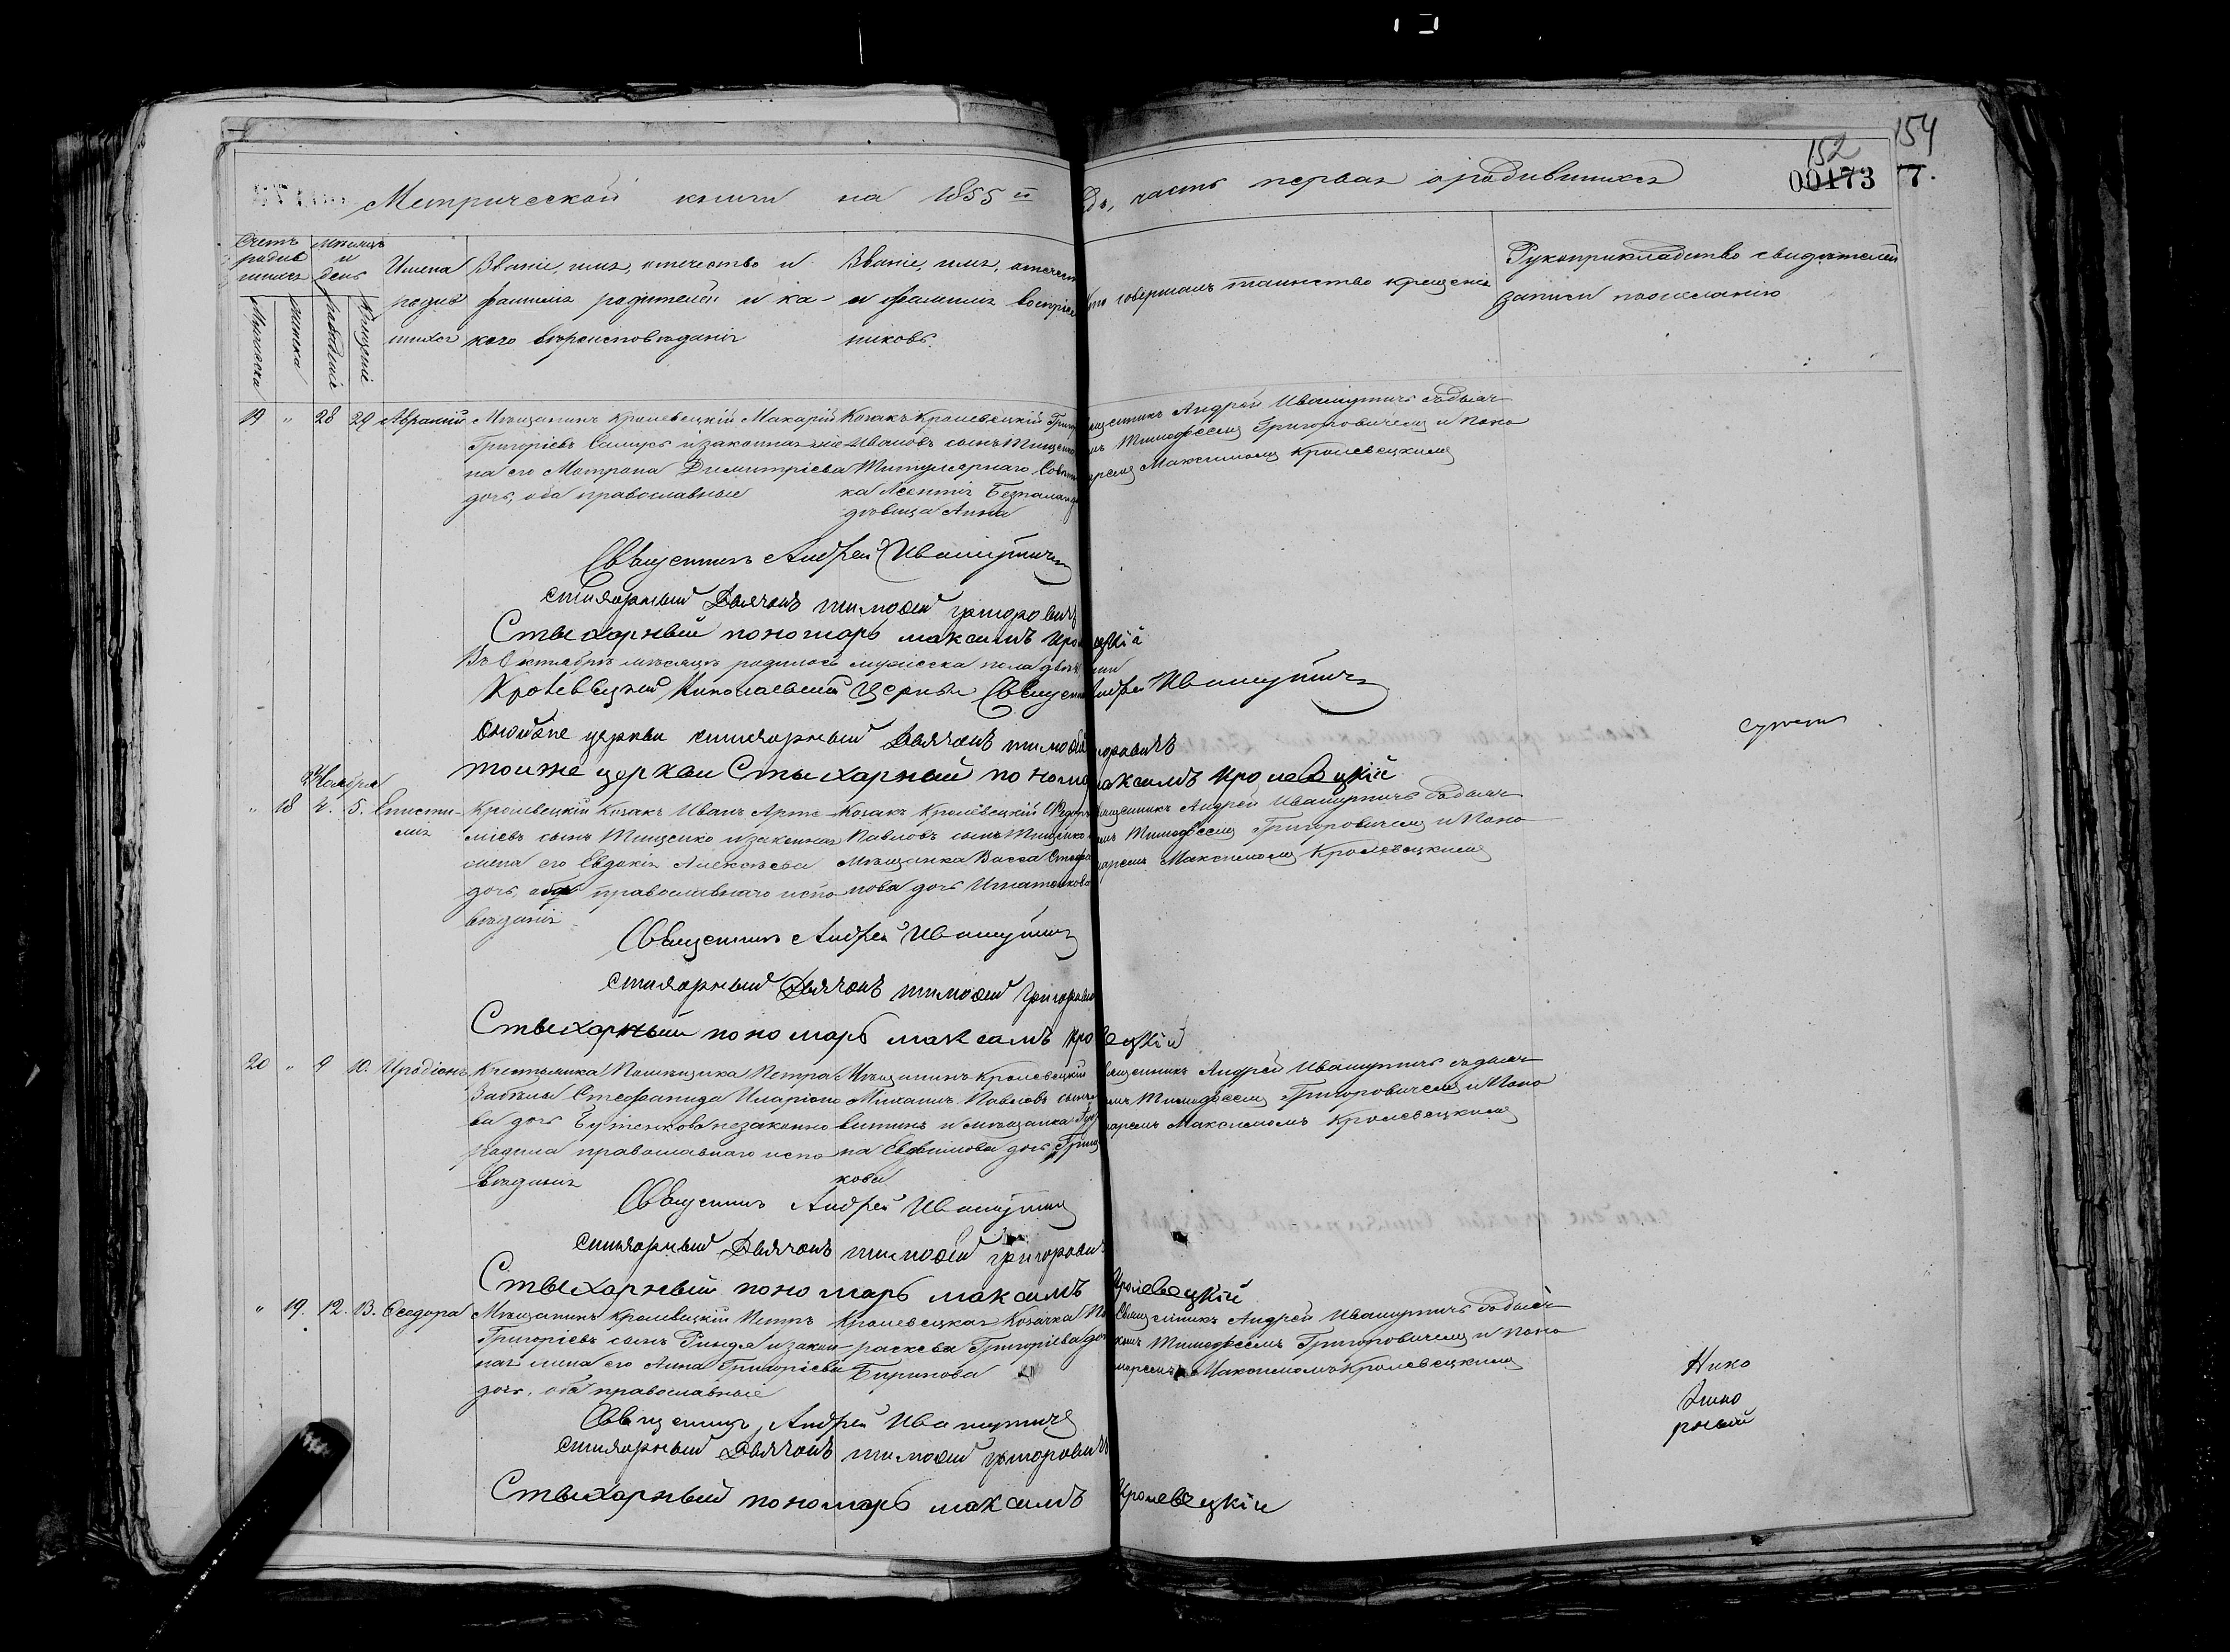 154
152
00173 7.
Метрической книги на 1855й Годъ, часть первая о родившихся
Счетъ родившихся
Мужеска
Женска
Мѣсяцъ и день
Рожденіе
Крещеніе
Имена родившихся
Званіе, имя, отечество и фамилія родителей и какого вѣроисповѣданія
Званіе, имя, отечест и фамилія воспріемниковъ.
Кто совершалъ таинство крещенія
Рукоприкладство свидѣтелей записи по желанію
19 " 28 29 Авраамій
Мѣщанинъ Кролевецкій Макарій
Григорьевъ и законная же
на его Матрона Димитріева
дочь, оба православные
Козакъ Кролевецкій Григор
Ивановъ сынъ Тищенко
Титулярнаго Совѣтни
ка
дѣвица Анна
Священникъ Андрей Ивашутичъ съ дьяч
комъ Тимофеемъ Григоровичемъ и Поно
маремъ Максимомъ Кролевецкимъ
Священникъ Андрей Ивашутичъ
Стихарный Дьячокъ Тимофей Григоровичъ
Стыхарный пономарь максимъ кролевецкій
Въ Октябрѣ мѣсяцѣ родилось мужеска пола
Кролевецкой Николаевской Церкви Священникъ Андрей Ивашутичъ
Онойже церкви стихарный Дьячокъ тимофей григоровичъ
тоиже церкви Стыхарный пономарь максимъ кролевецкій
Ноября
" 18 4. 5. Епистимія
Кролевецкій Козакъ Иванъ Арте
міевъ сынъ Тищенко и законная
жена его Евдокія Алексѣева
дочь, оба православнаго испо
вѣданія
Козакъ Кролевецкій Федоръ
Павловъ сынъ Тищенко
Мѣщанка Васса Стефа
нова дочь Игнатенкова
Священникъ Андрей Ивашутичъ съ дьяч
комъ Тимофеемъ Григоровичемъ и Поно
маремъ Максимомъ Кролевецкимъ
Священникъ Андрей Ивашутичъ
Стихарный Дьячокъ тимофей Григоровичъ
Стыхарный пономарь максимъ кролевецкій
20 " 9 10. Иродіонъ
Крестьянка Помѣщика Петра
Забѣлы Стефанида Иларіоно
ва дочь Бутенкова незаконно
родила православнаго испо
вѣданія
Мѣщанинъ Кролевецкій
Михаилъ Павловъ сынъ
и мѣщанка
на Евфимова дочь Гриц
кова
Священникъ Андрей Ивашутичъ съ дьяч
комъ Тимофеемъ Григоровичемъ и Поно
маремъ Максимомъ Кролевецкимъ
Священникъ Андрей Ивашутичъ
Стихарный Дьячокъ тимофей григоровичъ
Стыхарный пономарь максимъ кролевецкій
" 19. 12. 13. Феодора
Мѣщанинъ Кролевецкій Петръ
Григорьевъ сынъ Ринда и закон
ная жена его Анна Григорьева
дочь, оба православные
Кролевецкая Козачка Па
раскева Григорьева дочь
Бирикова
Священникъ Андрей Ивашутичъ съ дьяч
комъ Тимофеемъ Григоровичемъ и Поно
маремъ Максимомъ Кролевецкимъ
Священникъ Андрей Ивашутичъ
Стихарный Дьячокъ тимофей григоровичъ
Стыхарный пономарь максимъ кролевецкій